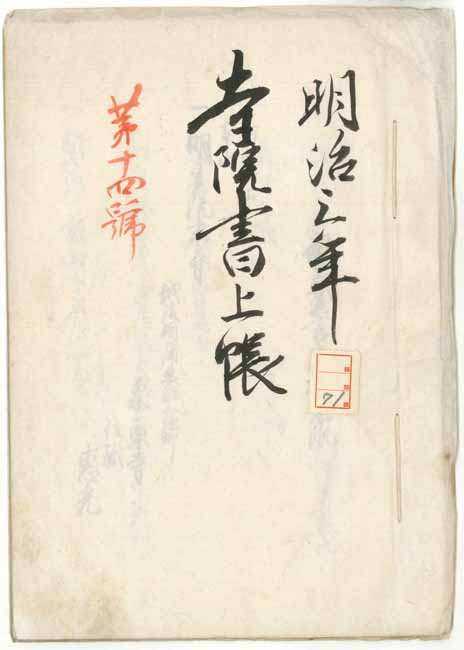 明治三年
寺院書上帳
第十四號
71